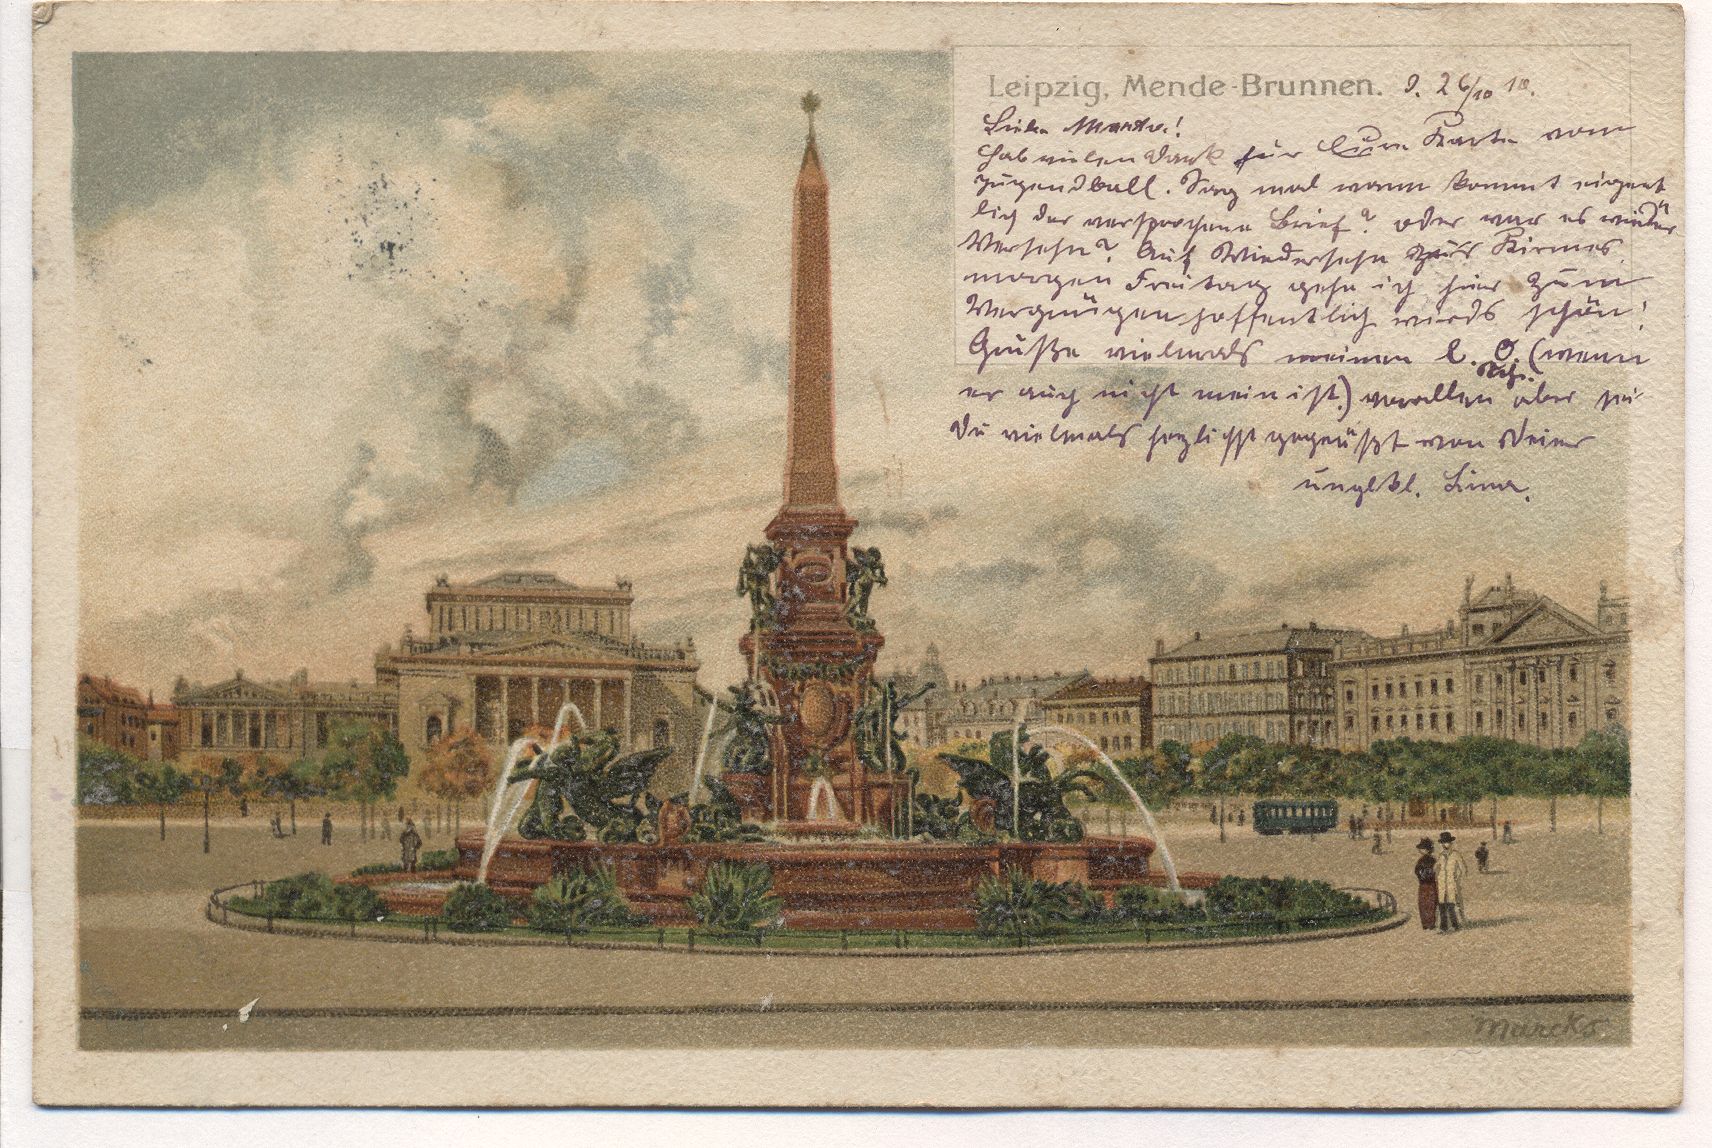 Leipzig, Mende-Brunnen. d. 26/10 10.
Liebe Martha!
Hab vielen Dank für Eure Karte vom
Jugendball. Sag mal wann kommt eigent
lich der versprochene Brief? oder war es wieder
Versehn? Auf Wiedersehn zur Kirmes.
morgen Freitag gehe ich hier zum
Vergnügen hoffentlich wirds schön!
Grüße vielmals meinen l. O. (wenn
Sch.
er auch nicht mein ist.) vorallem aber sei
Du vielmals herzlichst gegrüßt von Deiner
unglkl. Lina.
Marcks.